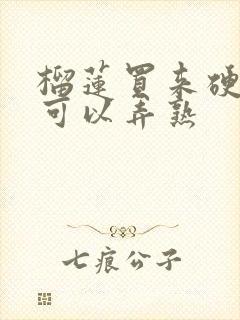 榴莲买来硬
可以弄熟
七痕公子